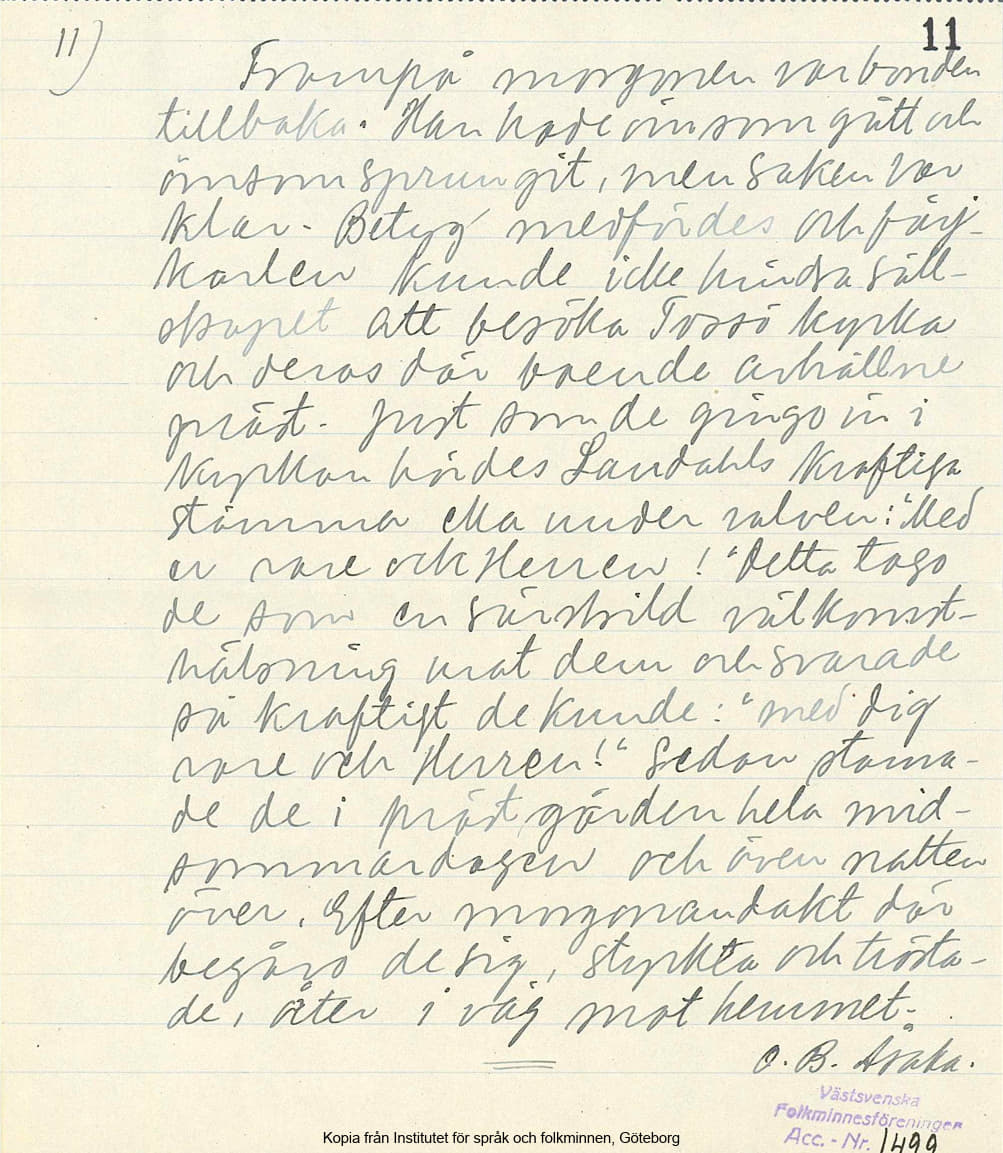 11) 11
Frampå morgonen var bonden
tillbaka. Han hade ömsom gått och
ömsom sprungit, men saken var
klar. Betyg medfördes och färj-
karlen kunde icke hindra säll-
skapet att besöka Tossö kyrka
och deras där boende avhållne
präst. Just som de gingo in i
kyrkan hördes Landahls kraftiga
stämma eka under valven: "Med
er vare ock Herren!" Detta togo
de som en särskild välkomst-
hälsning mot dem och svarade
så kraftigt de kunde: "med dig
vare och Herren!" Sedan stanna-
de de i prästgården hela mid-
sommardagen och även natten
över. Efter morgonandakt där
begåvo de sig, styrkta och trösta-
de, åter i väg mot hemmet.
O. B. Åsaka.
Västsvenska
Folkminnesföreningen
Acc. - Nr. 1499
Kopia från Institutet för språk och folkminnen, Göteborg